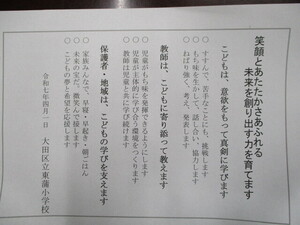 笑顔とあたたかさあふれる
未来を創り出す力を育てます
こどもは、意欲をもって真剣に学びます
○すすんで、苦手なことにも、挑戦します
○もち味を生かして、話し合い、協力します
○ねばり強く、考え、発表します
教師は、こどもに寄り添って教えます
○児童がもち味を発揮できるようにします
○児童が主体的に学び合う環境をつくります
○教師は児童と共に学び続けます
保護者・地域は、こどもの学びを支えます
○家族みんなで、早寝・早起き・朝ごはん
○未来の宝だ、微笑んで接します
○こどもの夢と希望を応援します
令和七年四月一日
大田区立東蒲小学校